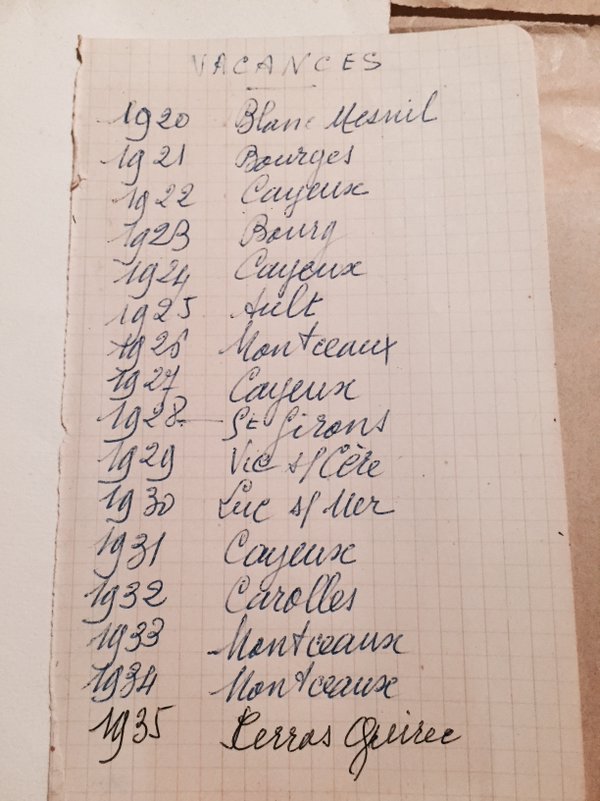 VACANCES
1920 Blanc Mesnil
1921 Bourges
1922 Cayeux
1923 Bourg
1924 Cayeux
1925 Ault
1926 Montceaux
1927 Cayeux
1928 - St Girons
1929 Vic s/ Cère
1930 Luc s/ Mer
1931 Cayeux
1932 Carolles
1933 Montceaux
1934 Montceaux
1935 Perros Guirec